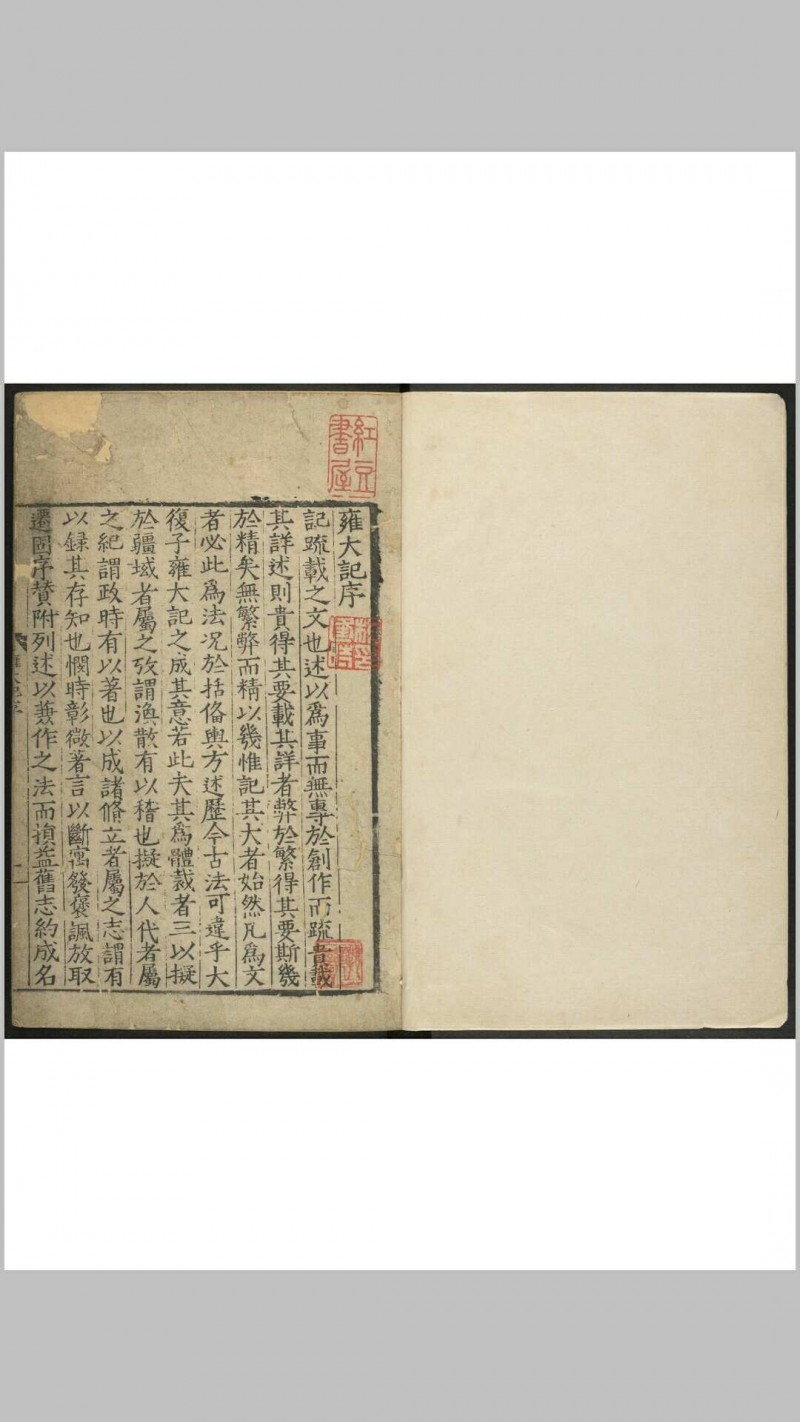 紅豆書屋
雍大記序
記疏載之文也述以爲事而無專於創作而疏貴載
其詳述則貴得其要載其詳者弊於繁得其要斯幾
於精矣無繁弊而精以幾惟記其大者始然凡爲文
者必此爲法况於括俻輿方述歷今古法可違乎大
復子雍大記之成其意若此夫其爲體裁者三以擬
於疆域者屬之攷謂渙散有以稽也擬於人代者屬
之紀謂政時有以著也以成諸脩立者屬之志謂有
以録其存知也憫時彰微著言以斷寓發褒諷放取
遷固序賛附列述以兼作之法而損益舊志約成名